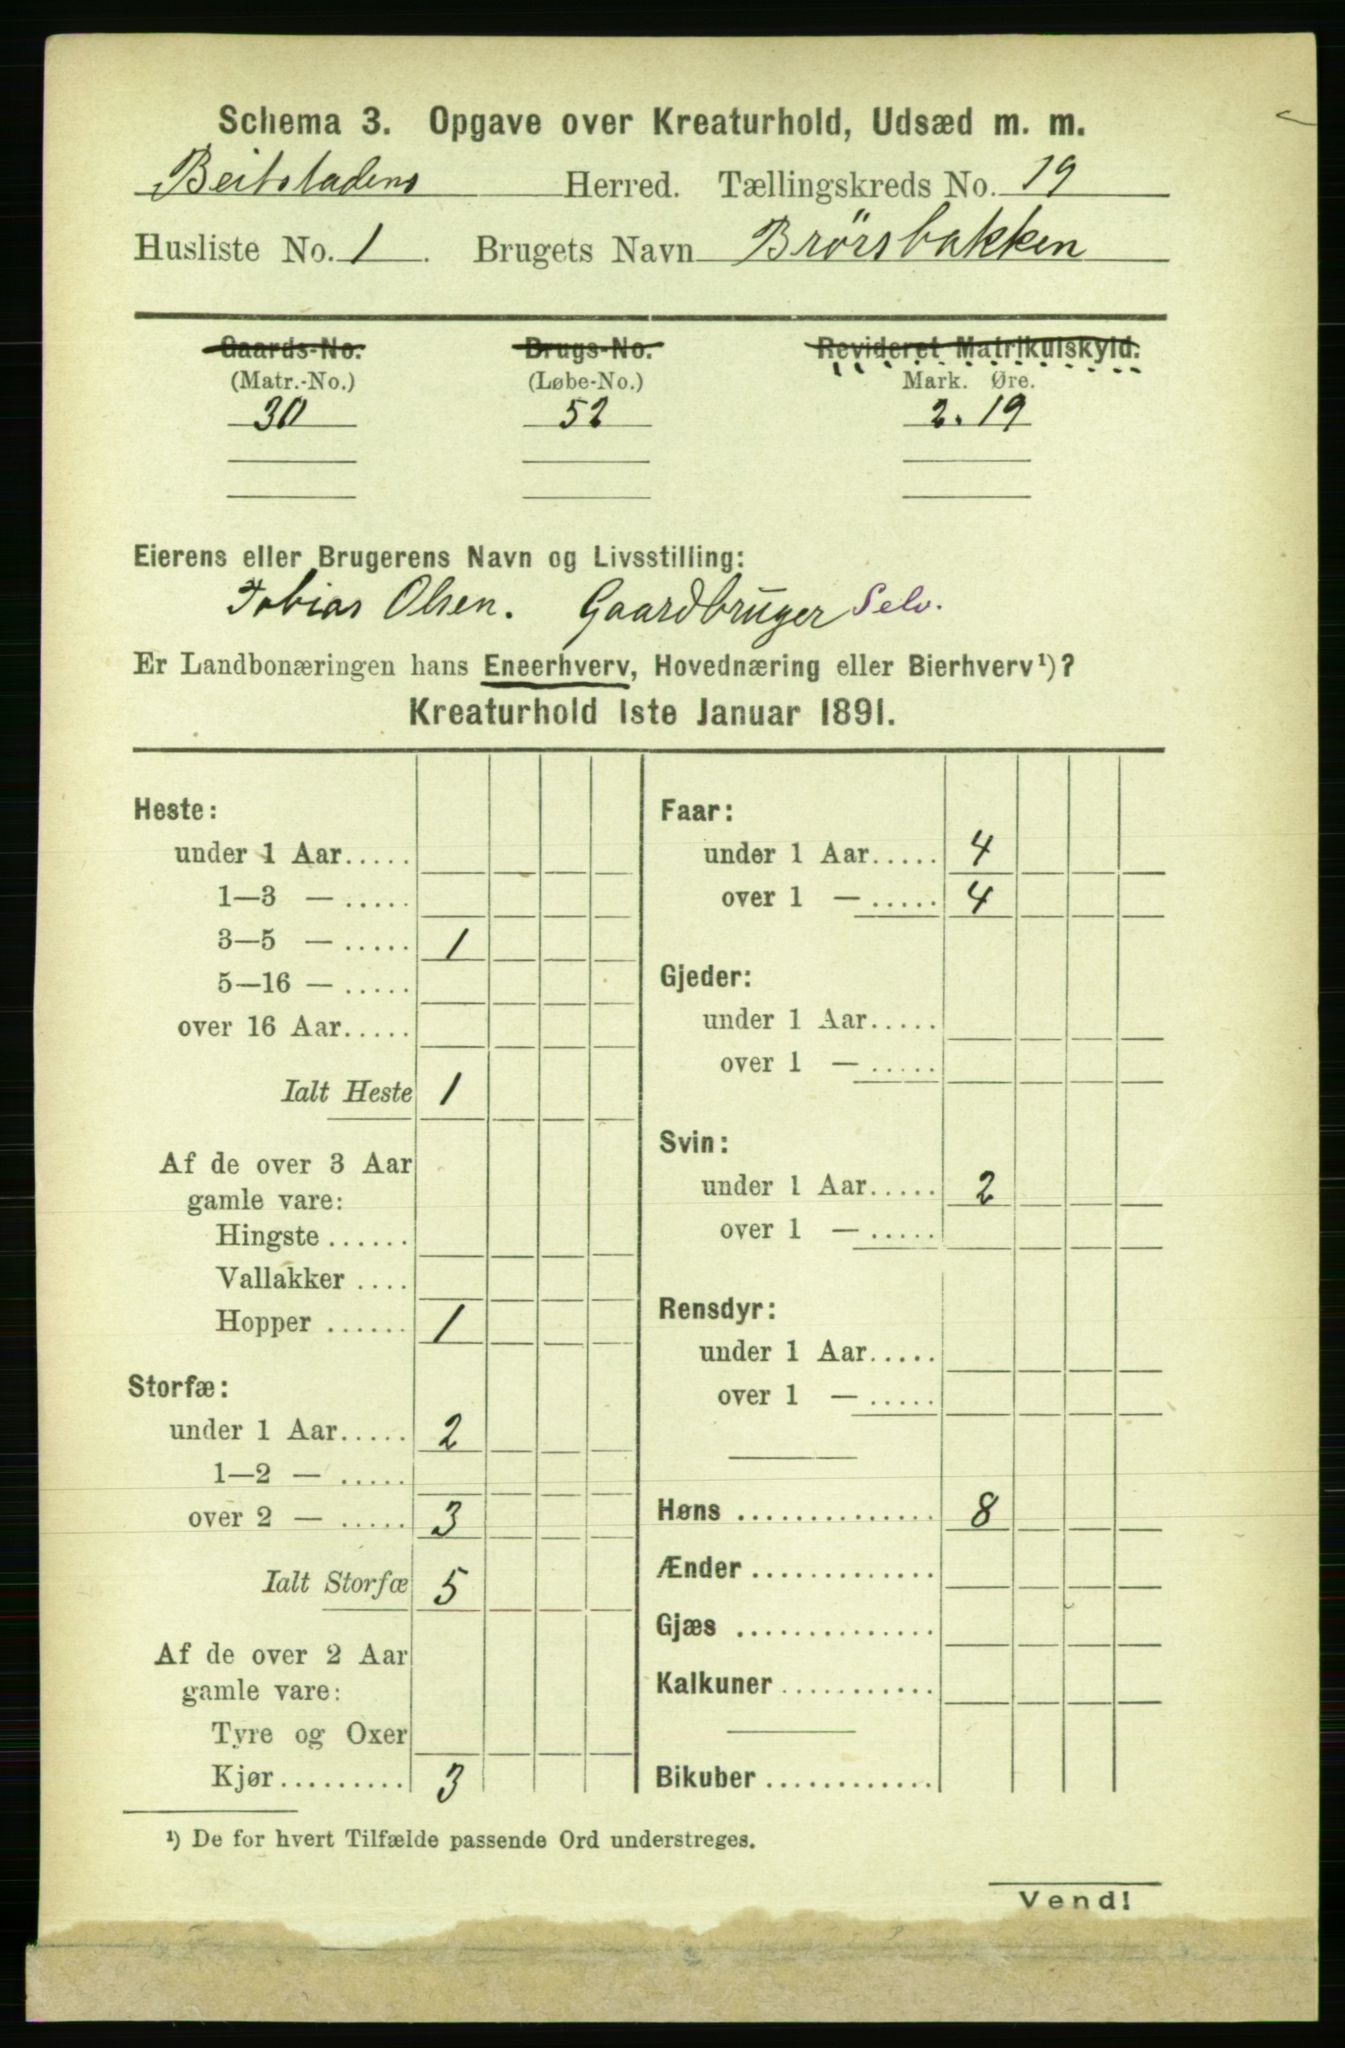 Schema 3. Opgave over Kreaturhold, Udsæd m. m.
Beitstadens Herred. Tællingskreds No. 19
Husliste No. 1. Brugets Navn Brørsbakken
Gaards-No. Brugs-No. Revideret Matrikulskyld.
(Matr.-No.) (Løbe-No.) Mark. Øre.
30 52 2.19
Eierens eller Brugerens Navn og Livsstilling:
Tobias Olsen. Gaardbruger Selv.
Er Landbonæringen hans Eneerhverv, Hovednæring eller Bierhverv¹)?
Kreaturhold 1ste Januar 1891.
Heste:
under 1 Aar.....
1—3 — .....
3—5 — ..... 1
5—16 — .....
over 16 Aar.....
Ialt Heste 1
Af de over 3 Aar
gamle vare:
Hingste ......
Vallakker ....
Hopper ...... 1
Storfæ:
under 1 Aar..... 2
1—2 — .....
over 2 — ..... 3
Ialt Storfæ 5
Af de over 2 Aar
gamle vare:
Tyre og Oxer
Kjør......... 3
Faar:
under 1 Aar..... 4
over 1 — ..... 4
Gjeder:
under 1 Aar.....
over 1 — .....
Svin:
under 1 Aar..... 2
over 1 — .....
Rensdyr:
under 1 Aar.....
over 1 — .....
Høns .............. 8
Ænder .............
Gjæs ..............
Kalkuner ...........
Bikuber ............
¹) De for hvert Tilfælde passende Ord understreges.
Vend!